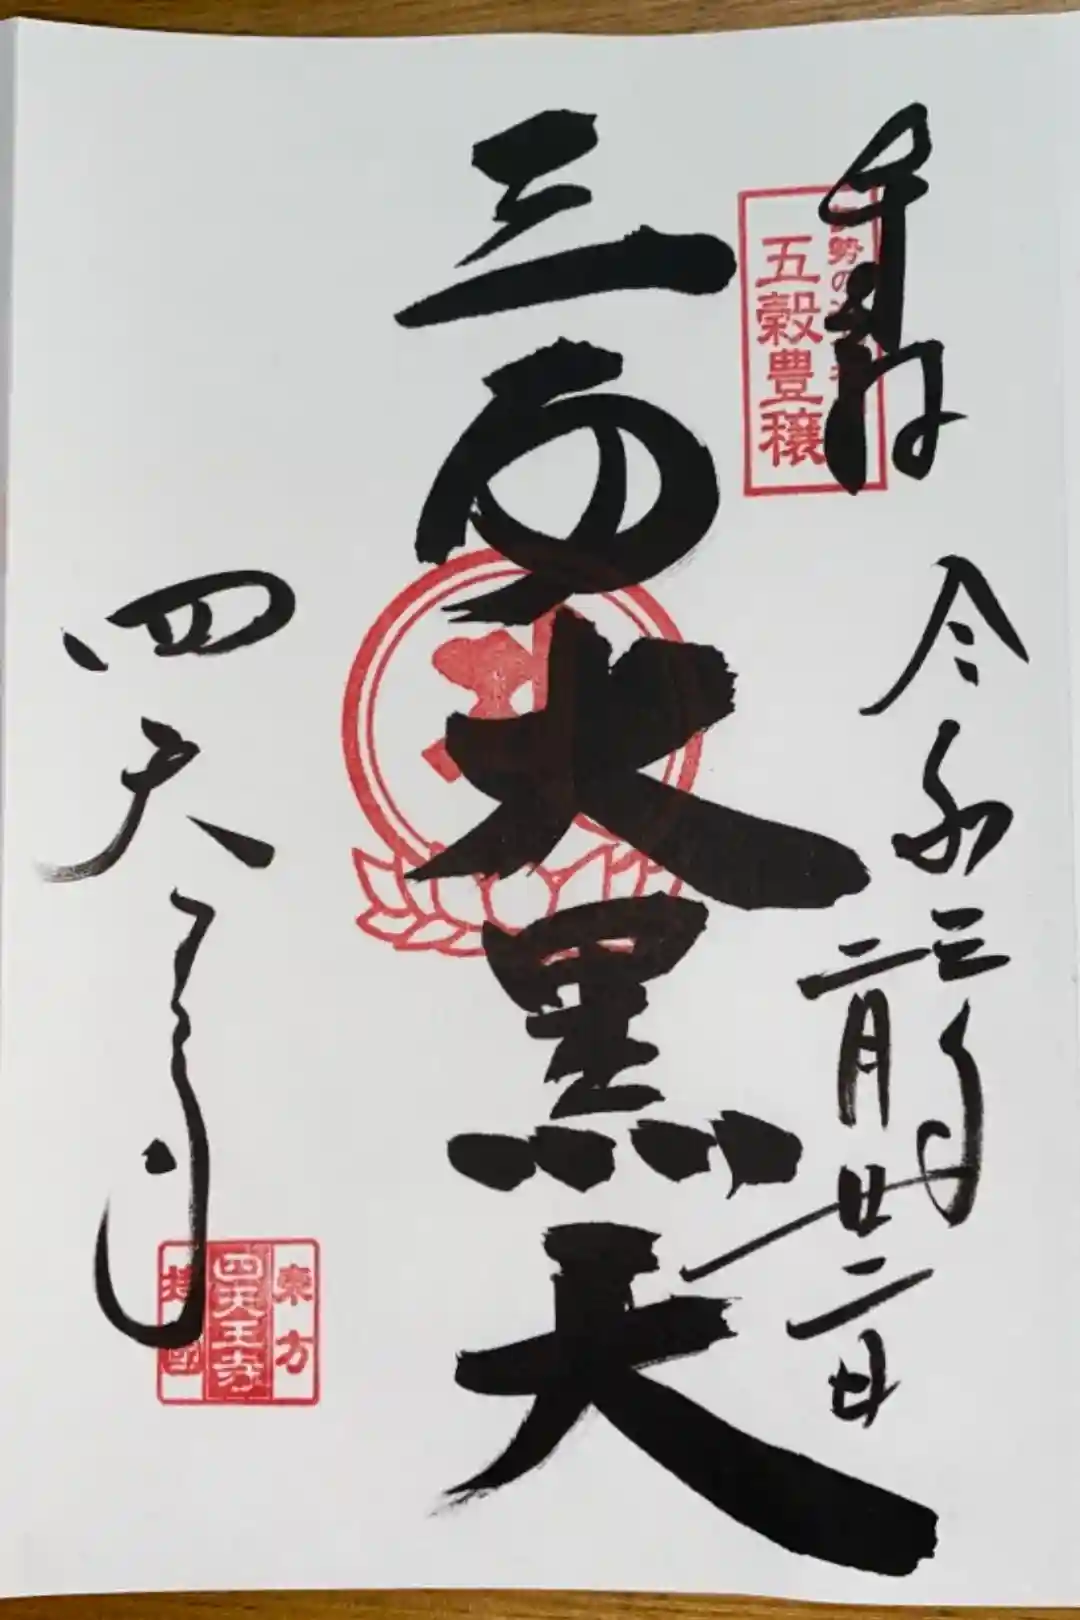 奉拝
五穀豊穣
令和三年
二月廿二日
三面大黒天
四天王寺
東方
四天王寺